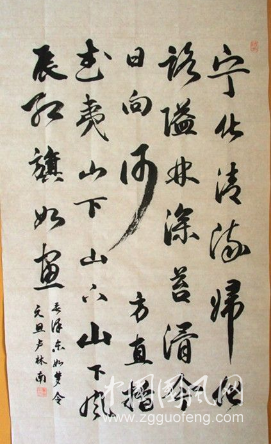 宁化清流歸化
路隘林深苔滑今
日向何方直指
武夷山下山下山下风
展红旗如画
毛泽东如梦令
元旦卢林南
中国国风网
www.zgguofeng.com